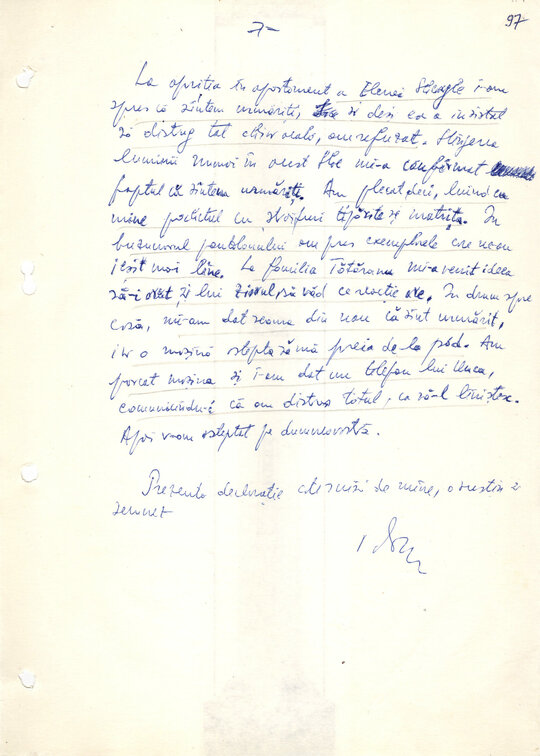 -7-
97
La apariția în apartament a Elenei Gheorghe i-am
spus că sîntem urmăriți, și deși ea a insistat
să distrug tot chiar acolo, am refuzat. Stingerea
luminii numai în mi-a confirmat
faptul că sîntem urmăriți. Am plecat deci, luînd cu
mine pachetul cu tipărite și matrița. În
buzunarul pantalonului am pus exemplarele care n-au
ieșit mai bine. La familia Tătăranu mi-a venit ideea
să-i arăt și lui să văd ce reacție are. În drum spre
casă, mi-am dat seama din nou că sînt urmărit,
iar o mașină aștepta să mă preia de la pod. Am
parcat mașina și i-am dat un telefon lui
comunicîndu-i că am distrus totul, ca să-l liniștesc.
Apoi v-am așteptat pe dumneavoastră.
Prezenta declarație este scrisă de mine, o susțin și
semnez